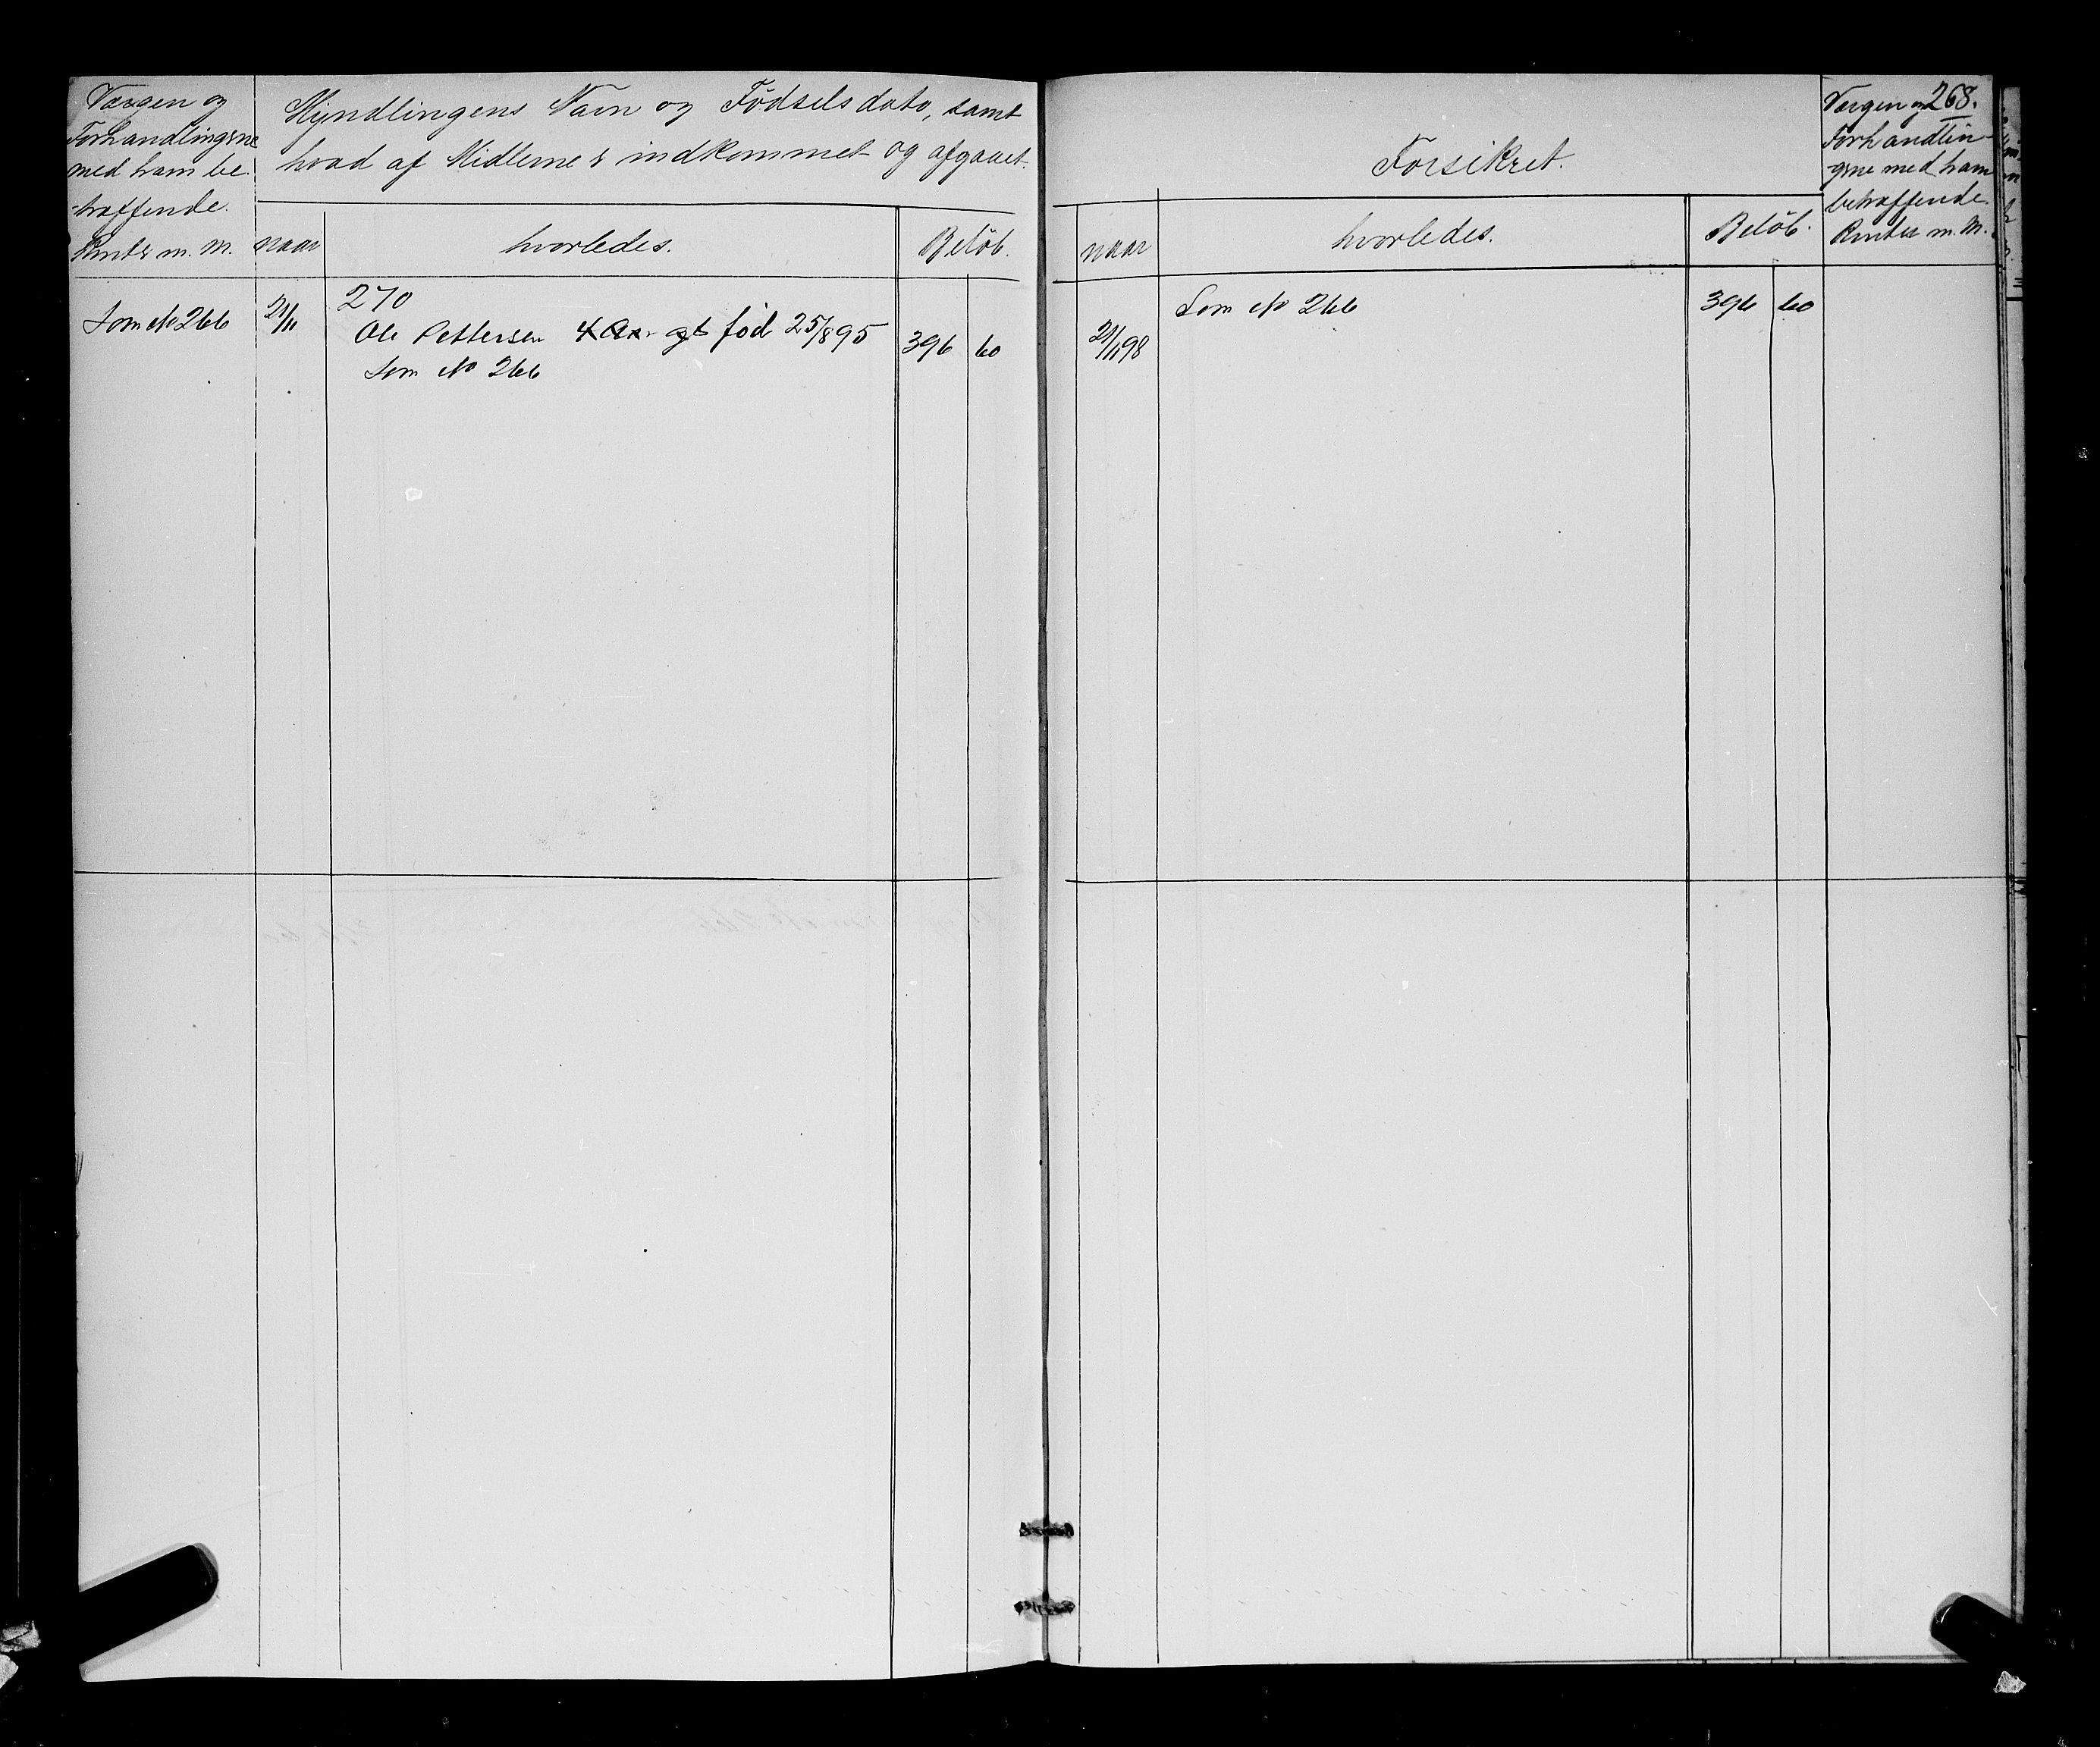 Værgen og
Forhandlingerne
med ham be-
-træffende
Renter m. M.
Myndlingens Navn og Födselsdato, samt
hvad af Midlerne er indkommet og afgaaet.
naar
hvorledes.
Belöb.
Som No 266
21/11
270
Ole Pettersen 4 Aar gl födt 25/8 95
Som No 266
396 60
268.
Forsikret.
naar
hvorledes.
Belöb.
Værgen og
Forhandlin-
-gerne med ham
betræffende
Renter m. M.
21/11 98
Som No 266
396 60